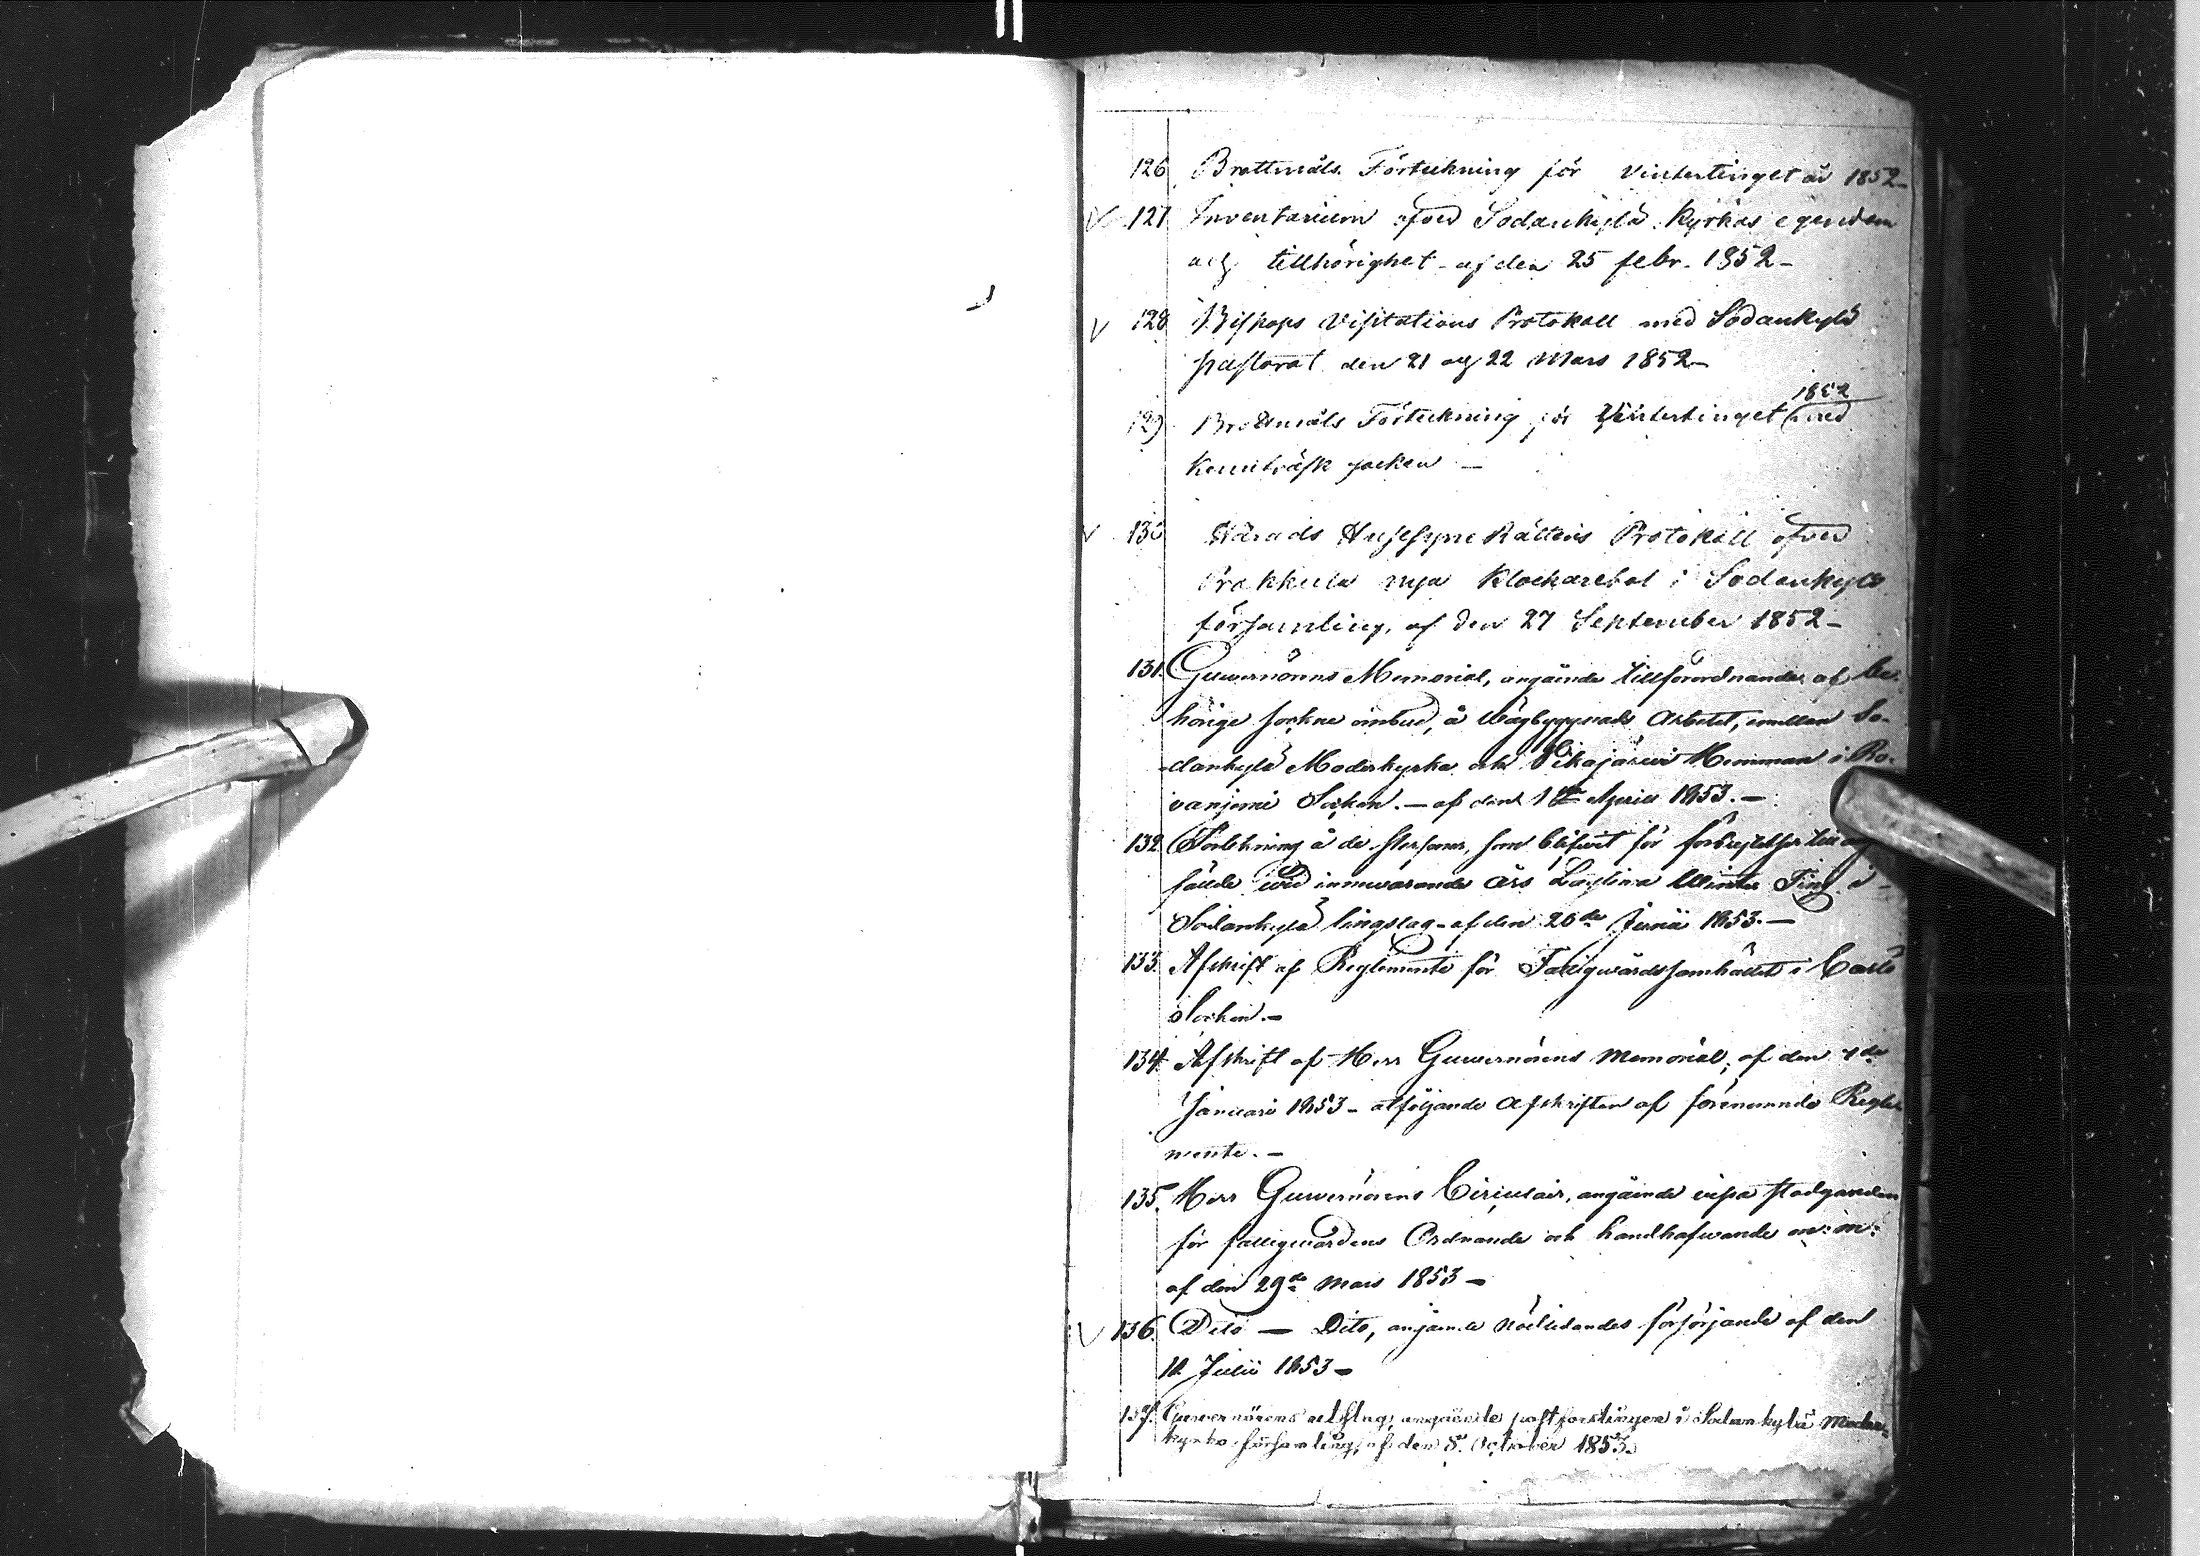 126 Brottmåls Förteckning för Vintertinget år 1852-
V 127 Inventarium öfver Sodankylä Kyrkas egendom
och tillhörighet - af den 25 febr. 1852-
V 128 Biskops Visitations Protokoll med Sodankylä
pastorat den 21 och 22 Mars 1852-
1852
129 Brottmåls Förteckning för Vintertinget med
Kemiträsk socken -
V 130 Härads Husesyns Rättens Protokoll öfver
nya Klockarebol i Sodankylä
församling, af den 27 September 1852-
131. Guvernörens Memorial, angående tillförordnande af be-
hörige sockne ombud, å Vägbyggnads Arbetet, emellan So-
dankylä Moderkyrka och Vikajärvi Hemman i Ro-
vaniemi Socken. - af den 1 April 1853. -
132 Förtekning å de Personer, som blifvit för förbrytelser till
fälde vid innewarande års Lagtima Winter Ting i
Sodankylä tingslag - af den 20de Junii 1853. -
133. Afskrift af Reglemente för Fattigwårdssamhället i Carlö
Socken. -
134. Afskrift af Herr Guvernörens Memorial, af den
Januari 1853 - åtföljande Afskriften af förenämnde Regle-
mente. -
135. Herr Guvernörens Circulair, angående stadganden
för fattigwårdens Ordnande och handhafwande m: m:
af den 29de Mars 1853 -
V 136. Dito - Dito, angående nödlidandes försörjande af den
Julii 1853 -
137. Guvernörens utslag, angående postforslingen i Sodankylä Moder-
kyrko församling, af den 8. October 1853.